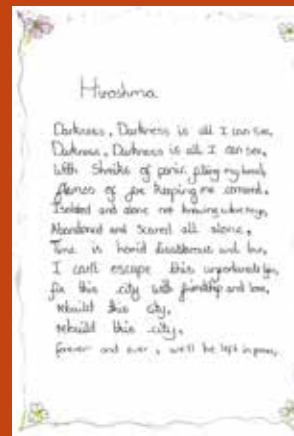 Hiroshima
Darkness, Darkness is all I can see,
Darkness, Darkness is all I can see,
With Shrieks of panic filling my head,
flames of fire keeping me
Isolated and alone not knowing
Abandoned and scared all alone,
Time is
I can't escape this unfortunate
fix this city with friendship and love,
rebuild this city,
rebuild this city,
forever and ever, we'll be left in peace,